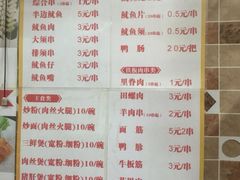 综合串 1元/串
半边鱿鱼 5元/串
鱿鱼肉 3元/串
大须串 3元/串
排须串 3元/串
鱿鱼仔 3元/串
鱿鱼嘴 3元/串
主食类
炒粉(肉丝火腿)10/碗
炒面(肉丝火腿)10/碗
三鲜煲(宽粉.细粉)10/碗
肉丝煲(宽粉.细粉)10/碗
猪肝煲(宽粉.细粉)10/碗
5元/串
鱿鱼片 0.5元/串
鱿鱼须 0.5元/串
鸭肠 20元/把
铁板肉串类
里脊肉 1元/串
田螺肉 3元/串
羊肉串 2元/串
面筋 2元/串
鸭脉 3元/串
牛板筋 3元/串